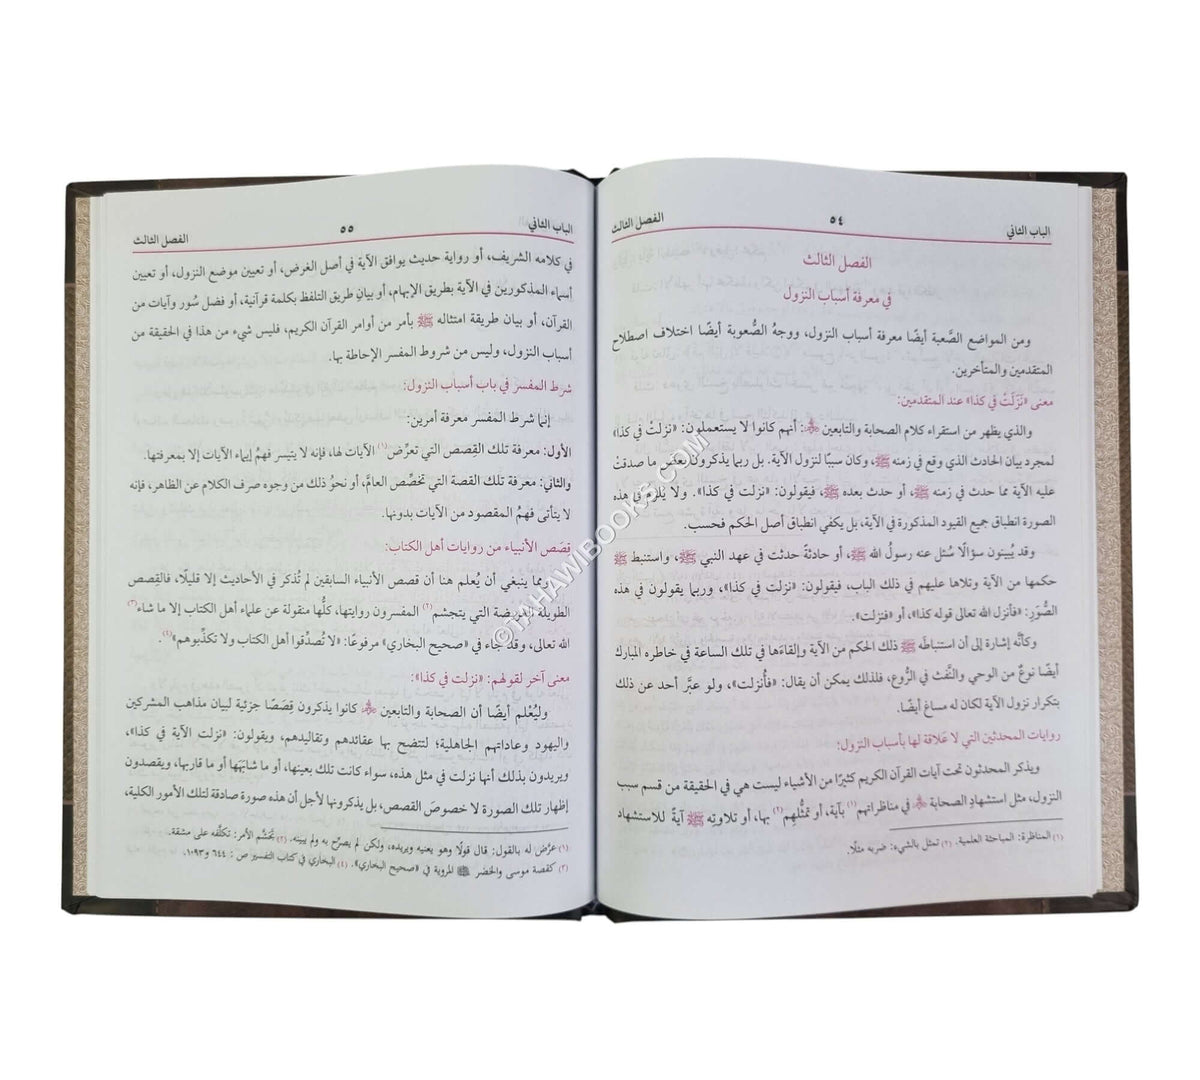 الباب الثاني ٥٤ الفصل الثالث
الفصل الثالث
في معرفة أسباب النزول
ومن المواضع الصَّعبة أيضًا معرفة أسباب النزول، ووجهُ الصُّعوبة أيضًا اختلاف اصطلاح
المتقدمين والمتأخرين.
معنى «نَزَلَتْ في كذا» عند المتقدمين:
والذي يظهر من استقراء كلام الصحابة والتابعين ﷺ: أنهم كانوا لا يستعملون: «نزلتْ في كذا»
لمجرد بيان الحادث الذي وقع في زمنه ﷺ، وكان سببًا لنزول الآية. بل ربما يذكرون بعض ما صدقتْ
عليه الآية مما حدث في زمنه ﷺ، أو حدث بعده ﷺ، فيقولون: «نزلت في كذا». ولا يُلزم في هذه
الصورة انطباق جميع القيود المذكورة في الآية، بل يكفي انطباق أصل الحكم فحسب.
وقد يُبينون سؤالًا سُئل عنه رسولُ الله ﷺ، أو حادثةً حدثت في عهد النبي ﷺ، واستنبط ﷺ
حكمها من الآية وتلاها عليهم في ذلك الباب، فيقولون: «نزلت في كذا»، وربما يقولون في هذه
الصُّوَرِ: «فأنزل الله تعالى قوله كذا»، أو «فنزلت».
وكأنَّه إشارة إلى أن استنباطَه ﷺ ذلك الحكم من الآية وإلقاءَها في تلك الساعة في خاطره المبارك
أيضًا نوعٌ من الوحي والنَّفث في الرُّوع، فلذلك يمكن أن يقال: «فأُنزلت»، ولو عبَّر أحد عن ذلك
بتكرار نزول الآية لكان له مساغ أيضًا.
روايات المحدثين التي لا عَلاقة لها بأسباب النزول:
ويذكر المحدثون تحت آيات القرآن الكريم كثيرًا من الأشياء ليست هي في الحقيقة من قسم سبب
النزول، مثل استشهادِ الصحابة في مناظراتهم(١) بآية، أو تمثُّلِهِم(٢) بها، أو تلاوتِه ﷺ آيةً للاستشهاد
(١) المناظرة: المباحثة العلمية. (٢) تمثل بالشيء: ضربه مثلًا.
الباب الثاني ٥٥ الفصل الثالث
في كلامه الشريف، أو رواية حديث يوافق الآية في أصل الغرض، أو تعيين موضع النزول، أو تعيين
أسماء المذكورين في الآية بطريق الإبهام، أو بيانِ طريق التلفظ بكلمة قرآنية، أو فضل سُور وآيات من
القرآن، أو بيان طريقة امتثاله ﷺ بأمر من أوامر القرآن الكريم، فليس شيء من هذا في الحقيقة من
أسباب النزول، وليس من شروط المفسر الإحاطة بها.
شرط المفسر في باب أسباب النزول:
إنما شرط المفسر معرفة أمرين:
الأول: معرفة تلك القِصص التي تعرِّض(١) الآيات لها، فإنه لا يتيسر فهمُ إيماء الآيات إلا بمعرفتها.
والثاني: معرفة تلك القصة التي تخصِّص العامَّ، أو نحوُ ذلك من وجوه صرف الكلام عن الظاهر، فإنه
لا يتأتى فهمُ المقصود من الآيات بدونها.
قصَص الأنبياء من روايات أهل الكتاب:
ومما ينبغي أن يُعلم هنا أن قصص الأنبياء السابقين لم تُذكر في الأحاديث إلا قليلًا، فالقِصص
الطويلة العريضة التي يتجشم(٢) المفسرون روايتها، كلُّها منقولة عن علماء أهل الكتاب إلا ما شاء(٣)
الله تعالى، وقد جاء في «صحيح البخاري» مرفوعًا: «لا تُصدِّقوا أهل الكتاب ولا تكذِّبوهم»(٤).
معنى آخر لقولهم: «نزلت في كذا»:
وليُعْلم أيضًا أن الصحابة والتابعين كانوا يذكرون قِصَصًا جزئية لبيان مذاهب المشركين
واليهود وعاداتهم الجاهلية؛ لتتضح بها عقائدهم وتقاليدهم، ويقولون: «نزلت الآية في كذا»،
ويريدون بذلك أنها نزلت في مثل هذه، سواء كانت تلك بعينها، أو ما شابَهَها أو ما قاربها، ويقصدون
إظهار تلك الصورة لا خصوصَ القصص، بل يذكرونها لأجل أن هذه صورة صادقة لتلك الأمور الكلية،
(١) عرَّض له بالقول: قال قولًا وهو يعنيه ويريده، ولكن لم يصرِّح به ولم يبينه. (٢) تجَشَّم الأمر: تكلَّفه على مشقة.
(٣) كقصة موسى والخضر المروية في «صحيح البخاري». (٤) البخاري في كتاب التفسير ص: ٦٤٤ و١٠٩٣.
©TAHAWIBOOKS.COM